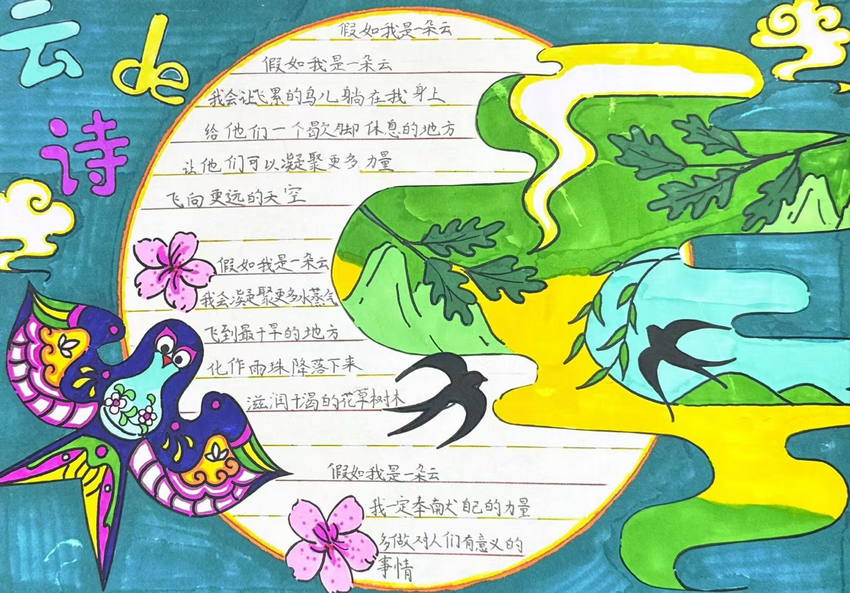 云
de
诗
假如我是一朵云
假如我是一朵云
我会让飞累的鸟儿躺在我身上
给他们一个歇脚休息的地方
让他们可以凝聚更多力量
飞向更远的天空
假如我是一朵云
我会凝聚更多水蒸气
飞到最干旱的地方
化作雨珠降落下来
滋润干渴的花草树木
假如我是一朵云
我一定奉献自己的力量
多做对人们有意义的
事情